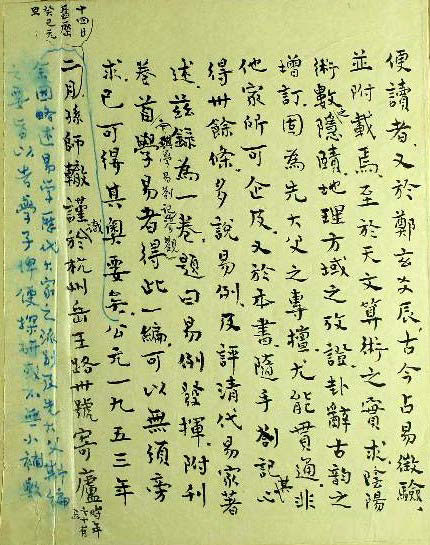 便讀者又於鄭玄爻辰古今占易徵驗
並附載焉至於天文算術之實求陰陽
術數之隱賾地理方域之攷證卦辭古韵之
增訂固為先大父之專擅尤能貫通非
他家所可企及又於本書隨手劄記心
得卅餘條多說易例及評清代易家著
述茲錄為一卷題曰易例發揮附刊
卷首學易者得此一編可以無須旁
求已可得其奧要矣公元一九五三年
十四日
舊曆
癸巳元
旦
二月孫師轍謹識於杭州岳王路卅號寄廬時年
全因略述易學歷代大家之派別及先大父斯編
之要旨以告學子俾便探研或不無小補歟